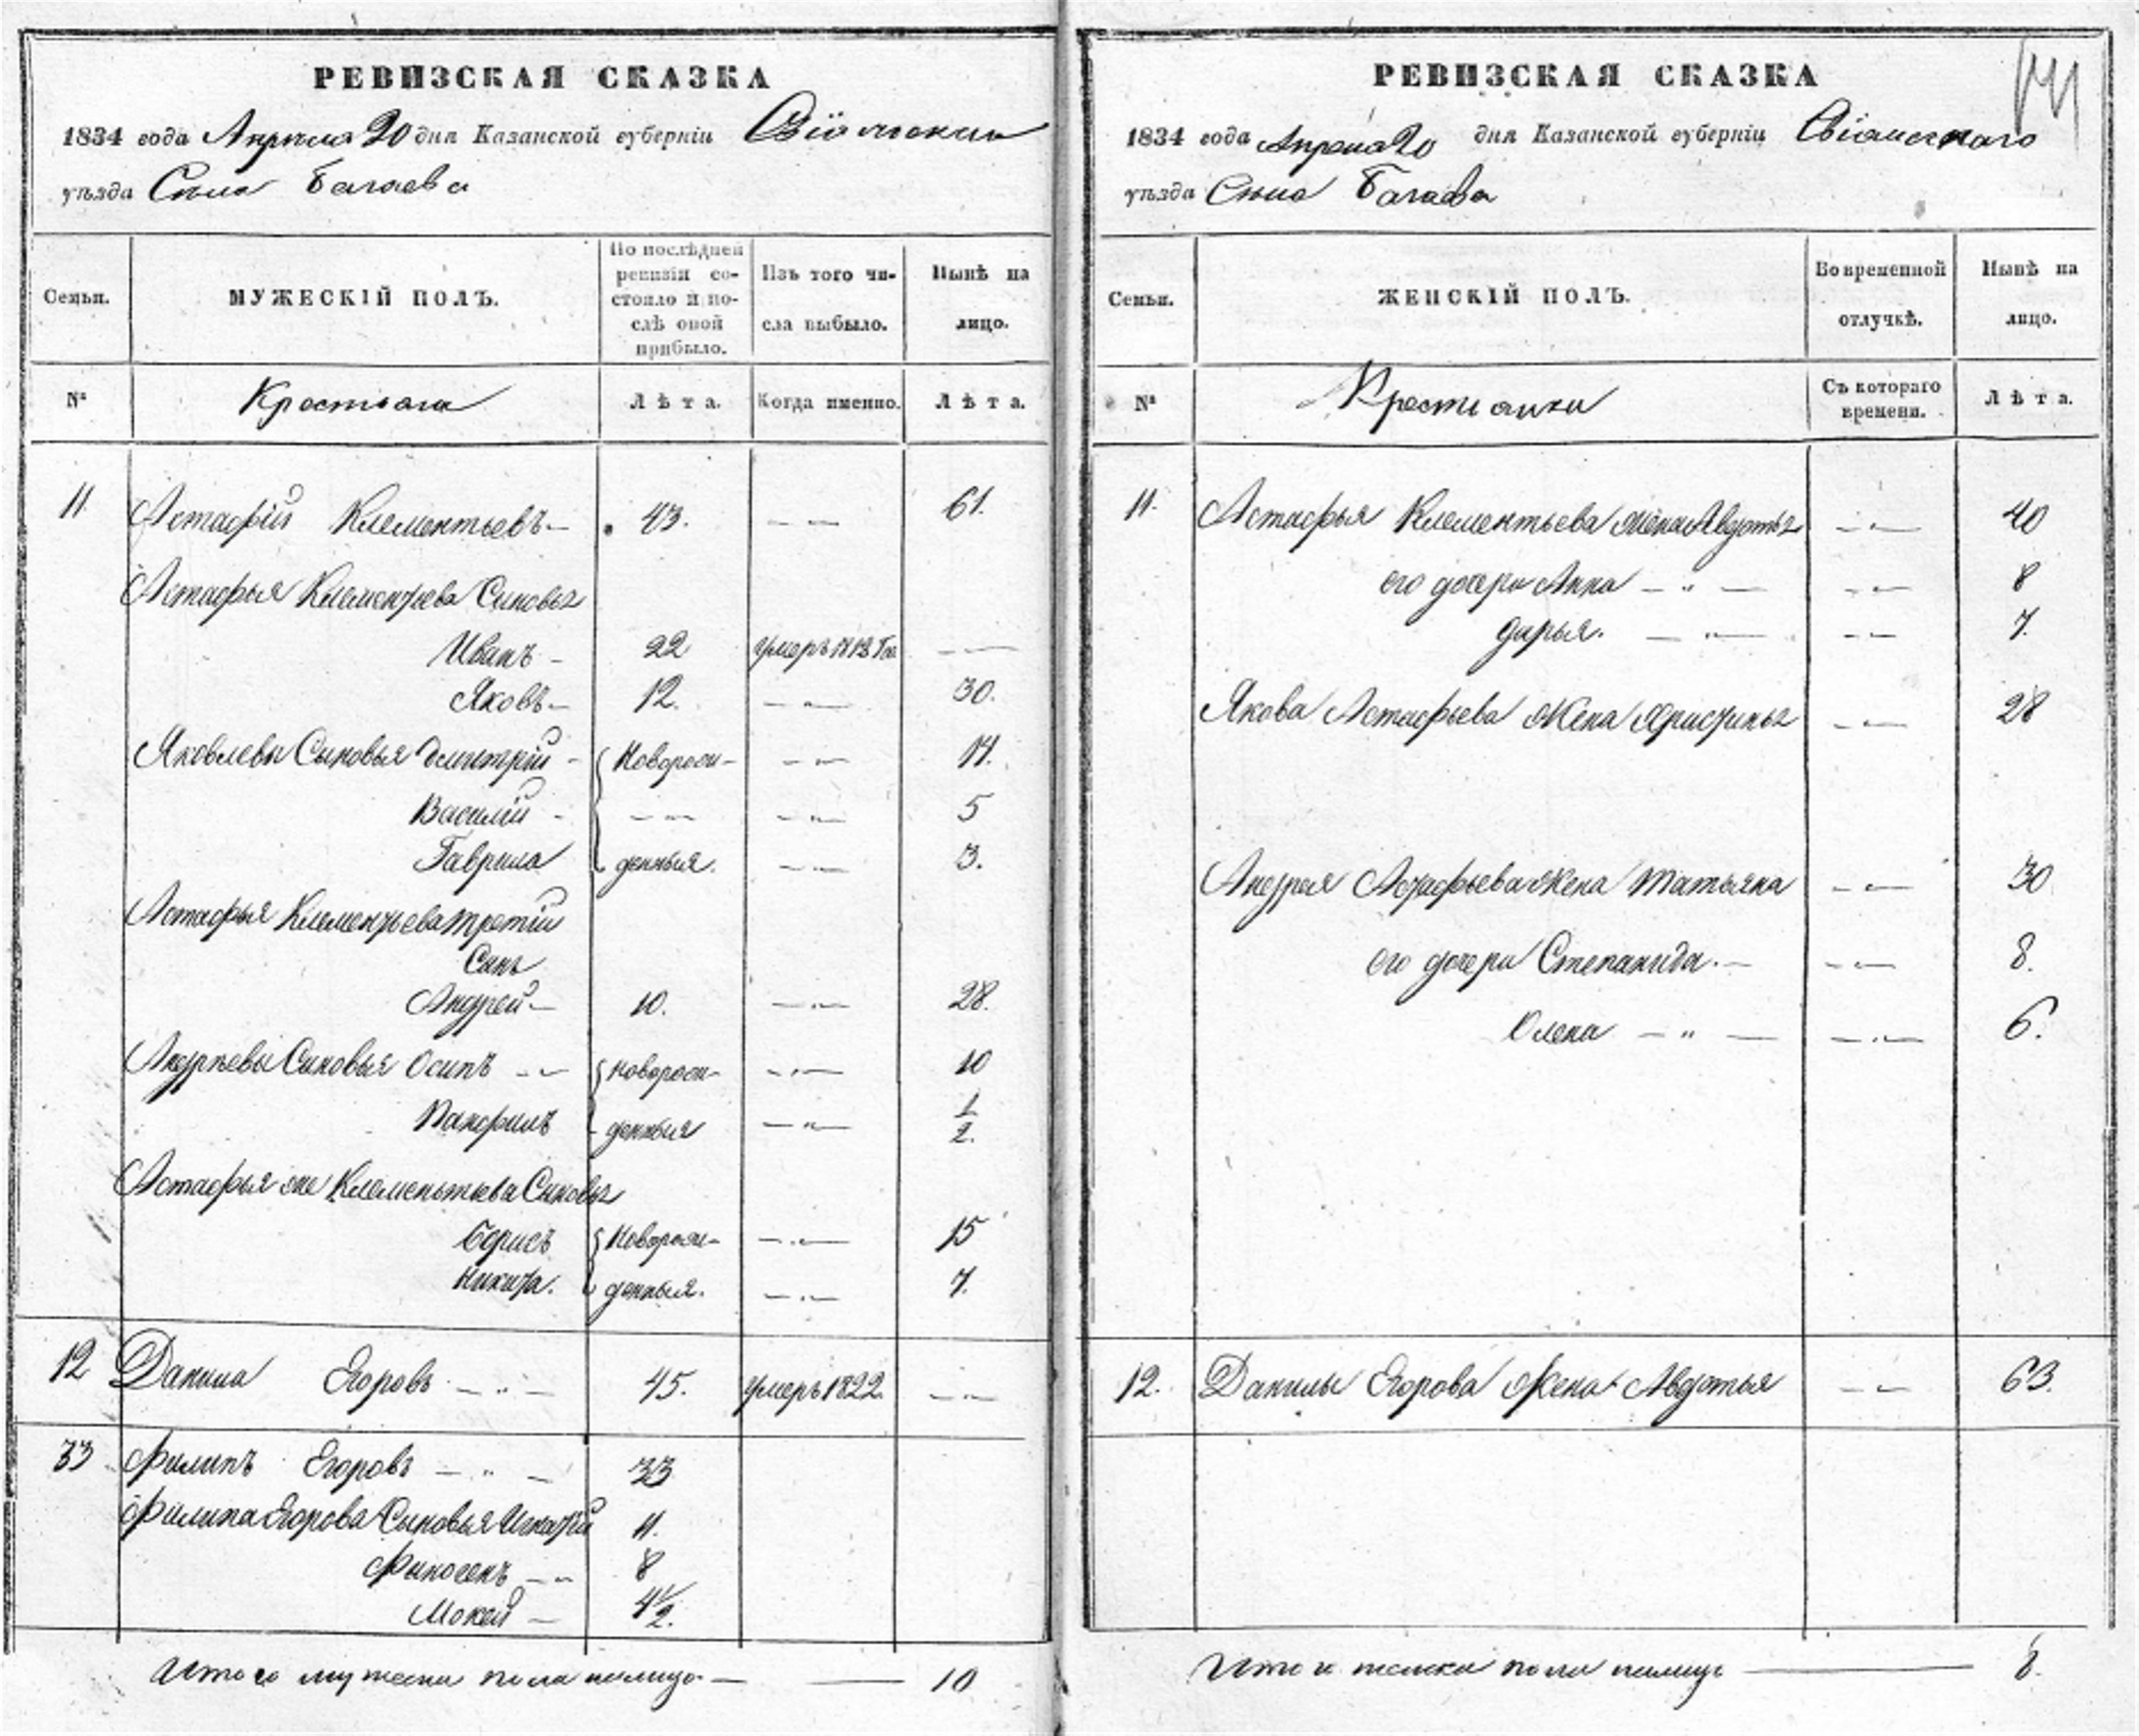 РЕВИЗСКАЯ СКАЗКА
1834 года Апреля 20 дня Казанской губернiи Свiяжскаго
уѣзда Села Багаева
Семьи.
МУЖЕСКIЙ ПОЛЪ.
По послѣдней ревизiи состояло и послѣ оной прибыло.
Изъ того числа выбыло.
Нынѣ на лицо.
№
Крестьяна
Лѣта.
Когда именно.
Лѣта.
11. Астафiй Клементьевъ 43. 61.
Астафья Клементьева Сыновья
Иванъ 22 умеръ
Яковъ 12. 30.
Яковлевы Сыновья Дмитрiй Новорож- 14.
Василiй 5
Гаврила денныя. 3.
Астафья Клементьева третiй
Сынъ
Андрей 10. 28.
Андрѣевы Сыновья Осипъ Новорож- 10
Панфилъ денныя 1/2.
Астафья же Клементьева Сыновья
Борисъ Новорож- 15
Никита. денныя. 7.
12 Данила Егоровъ 45. умеръ 1822
33 Филипъ Егоровъ 33
Филипа Егорова Сыновья Игнатiй 11.
Финогенъ 8
Мокей 4 1/2.
Итого мужеска пола налицо 10
РЕВИЗСКАЯ СКАЗКА
1834 года Апреля 20 дня Казанской губернiи Свiяжскаго
уѣзда Села Багаева
Семьи.
ЖЕНСКIЙ ПОЛЪ.
Во временной отлучкѣ.
Нынѣ на лицо.
№
Крестьянки
Съ котораго времени.
Лѣта.
11. Астафья Клементьева жена Авдотья 40
его дочери Анна 8
Дарья. 7.
Якова Астафьева жена Христинья 28
Андрея Астафьева жена Татьяна 30
его дочери Степанида. 8.
Олена 6.
12. Данилы Егорова жена Авдотья 63.
Итого женска пола налицо 8.